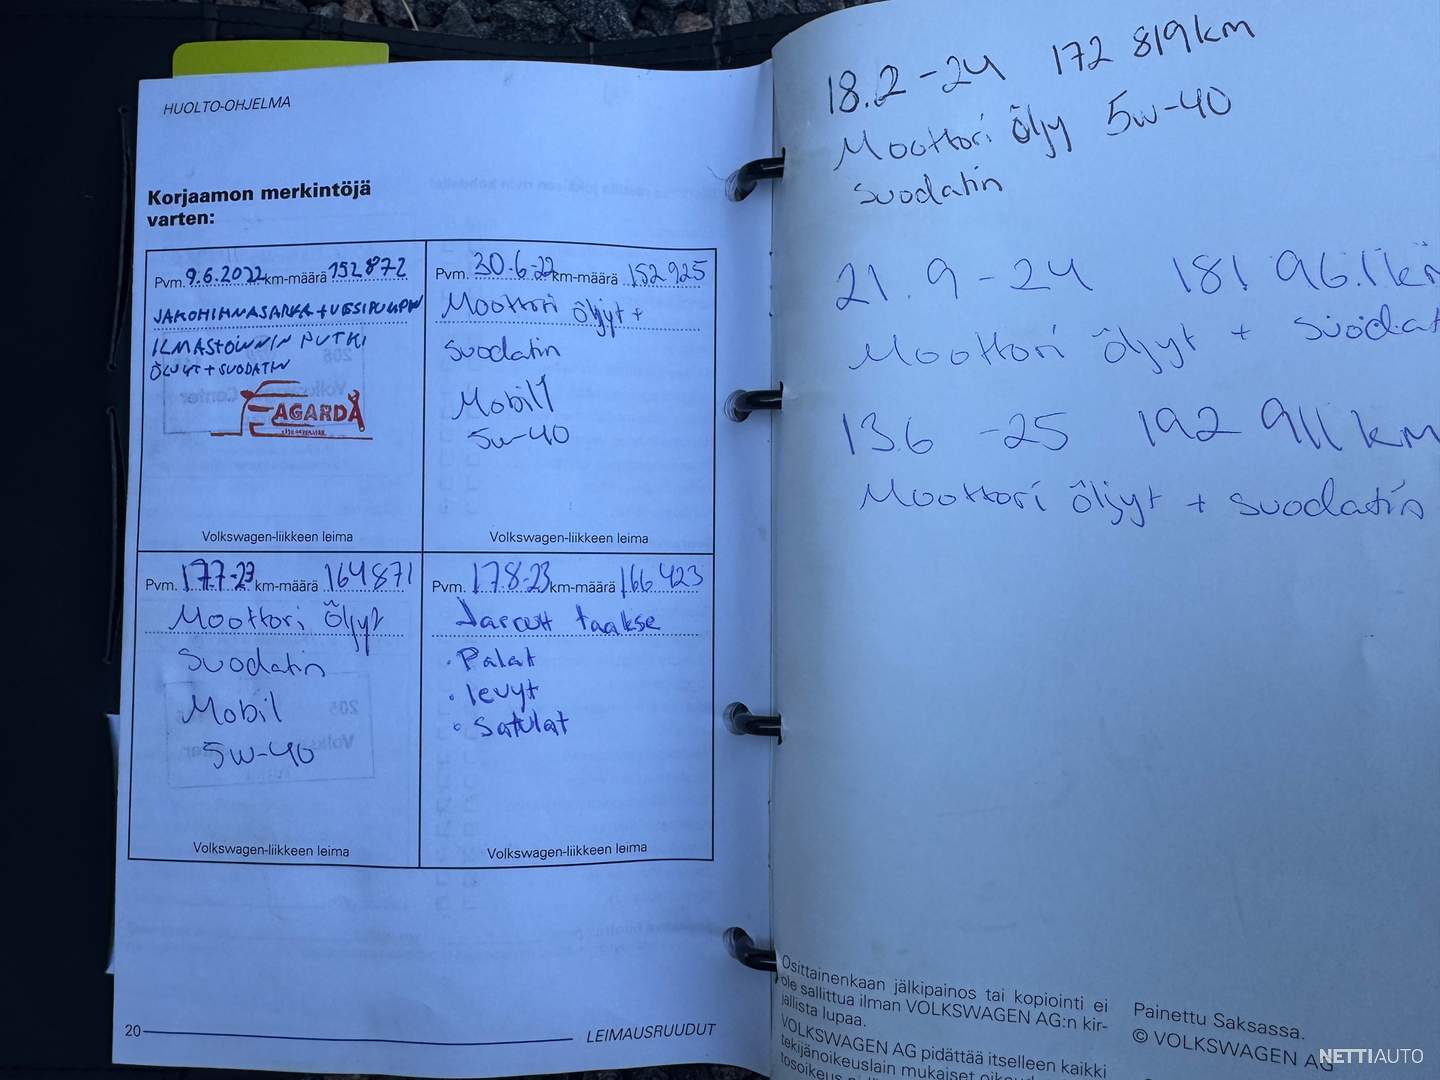 HUOLTO-OHJELMA
Korjaamon merkintöjä
varten:
Pvm. 9.6.2022 km-määrä 152 872
JAKOHIHNASARJA + VESIPUMPPU
ILMASTOINNIN PUTKI
ÖLJYT + SUODATIN
AGARDA
Volkswagen-liikkeen leima
Pvm. 30.6-22 km-määrä 152 925
Moottori öljyt +
suodatin
Mobil1
5w-40
Volkswagen-liikkeen leima
Pvm. 17.7-23 km-määrä 164 871
Moottori Öljyt
Suodatin
Mobil
5w-40
Volkswagen-liikkeen leima
Pvm. 17.8-23 km-määrä 166 423
Jarrut taakse
• Palat
• levyt
• Satulat
Volkswagen-liikkeen leima
20
LEIMAUSRUUDUT
18.2-24 172 819km
Moottori öljy 5w-40
suodatin
21.9-24 181 961km
Moottori öljyt + suodat
13.6 -25 192 911 km
Moottori öljyt + suodatin
Osittainenkaan jälkipainos tai kopiointi ei
ole sallittua ilman VOLKSWAGEN AG:n kir-
jallista lupaa.
VOLKSWAGEN AG pidättää itselleen kaikki
tekijänoikeuslain mukaiset
tosoikeus
Painettu Saksassa.
© VOLKSWAGEN AG
NETTIAUTO